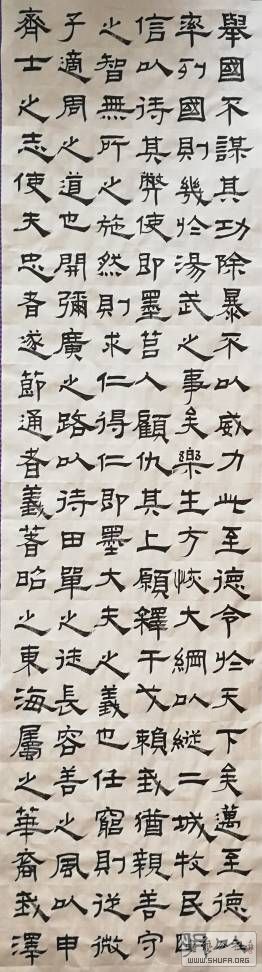 舉國不謀其功除暴不以威力此至德令於天下矣邁至德以
率列國則幾於湯武之事矣樂生方恢大綱以縱二城牧民明
信以待其弊使即墨莒人顧仇其上願釋干戈賴我猶親善守
之智無所之施然則求仁得仁即墨大夫之義也任窮則從微
子適周之道也開彌廣之路以待田單之徒長容善之風以申
齊士之志使夫忠者遂節通者義著昭之東海屬之華裔我澤
WWW.SHUFA.ORG